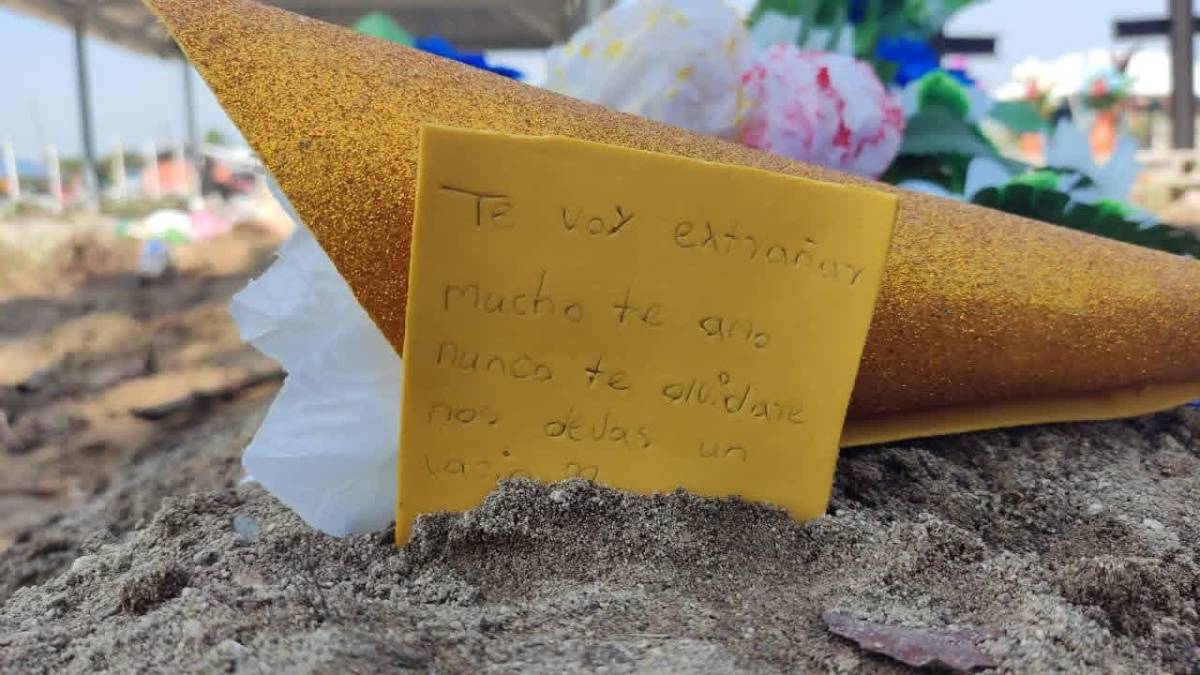 Te voy extrañar
mucho te amo
nunca te olvidare
nos devas un
vacio